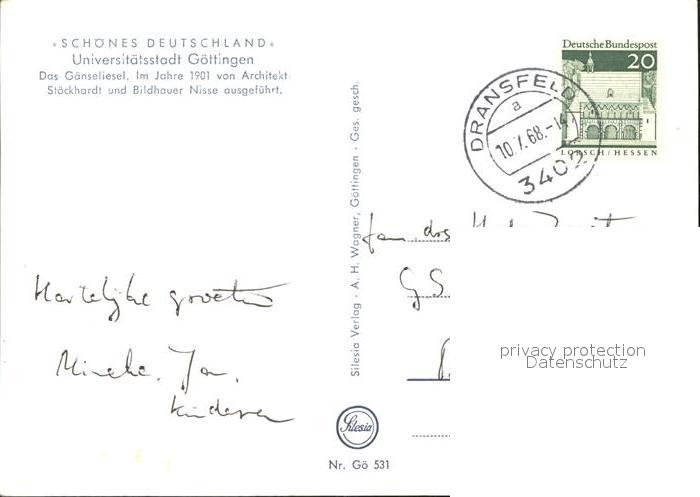 »SCHÖNES DEUTSCHLAND«
Universitätsstadt Göttingen
Das Gänseliesel. Im Jahre 1901 von Architekt
Stöckhardt und Bildhauer Nisse ausgeführt.
Deutsche Bundespost
20
LORSCH/HESSEN
DRANSFELD
a
3402
Silesia Verlag · A. H. Wagner, Göttingen · Ges. gesch.
fam. drs
G S
Hartelijke groeten
Mineke. Jan.
kinderen
privacy protection
Datenschutz
Silesia
Nr. Gö 531